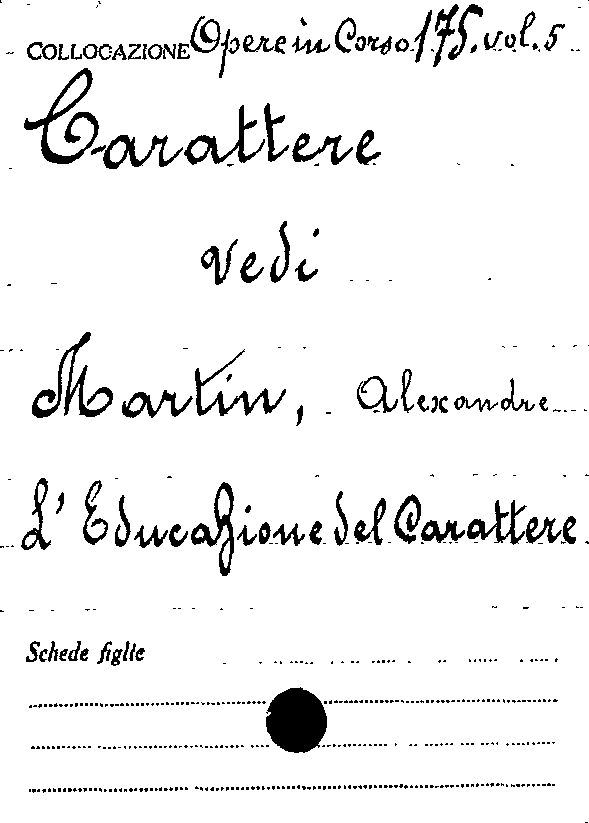 COLLOCAZIONE Opere in Corso 175. vol. 5
Carattere
vedi
Martin, Alexandre
L' Educazione del Carattere
Schede figlie